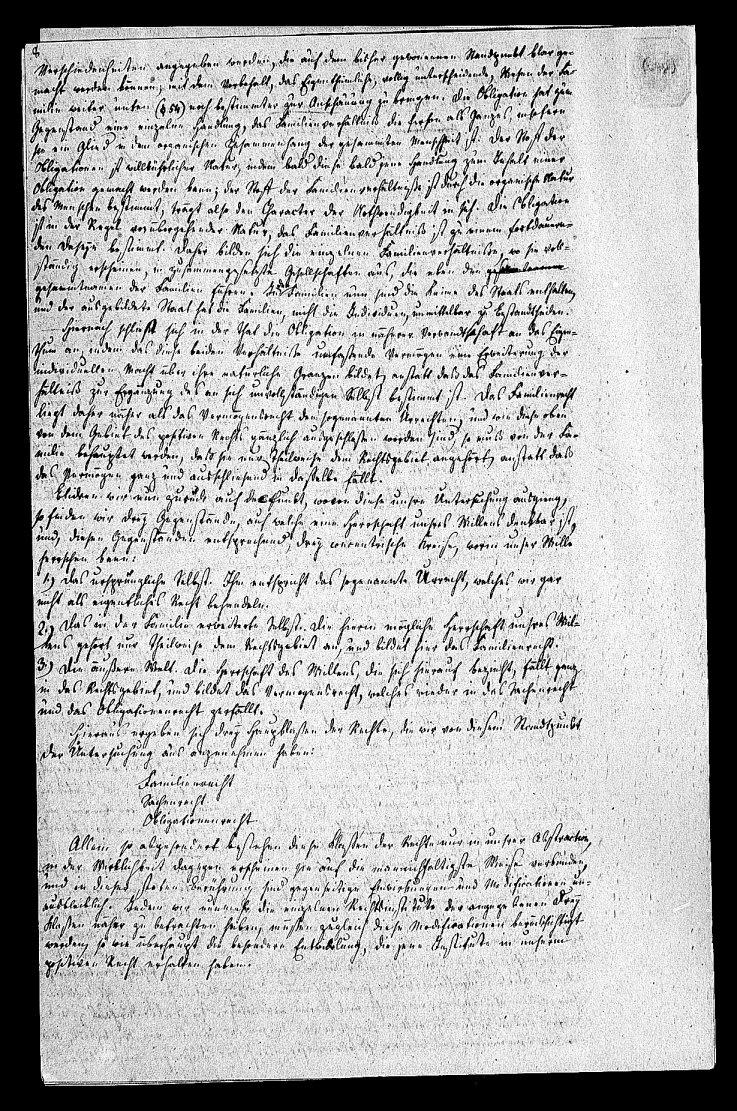 8
Verschiedenheiten angegeben werden, die auf dem bisher gewonnenen Standpunkt klar ge-
macht werden können, mit dem Vorbehalt, das Eigenthümliche, völlig unterscheidende, Wesen der Fa-
milie weiter unten (§ 54) noch bestimmter zur Anschauung zu bringen. Die Obligation hat zum
Gegenstand eine einzelne Handlung, das Familienverhältniß die Person als Ganzes, insofern
sie ein Glied in dem organischen Zusammenhang der gesammten Menschheit ist. Der Stoff der
Obligationen ist willkührlicher Natur, indem bald diese bald jene Handlung zum Inhalt einer
Obligation gemacht werden kann; der Stoff der Familienverhältnisse ist durch die organische Natur
des Menschen bestimmt, trägt also den Character der Nothwendigkeit in sich. Die Obligation
ist in der Regel vorübergehender Natur, das Familienverhältniß ist zu einem fortdauern-
den Daseyn bestimmt. Daher bilden sich die einzelnen Familienverhältnisse, wo sie voll-
ständig erscheinen, in zusammengesetzte Gesellschaften aus, die eben den
gesammtnamen der Familien führen. In den Familien nun sind die Keime des Staats enthalten,
und der ausgebildete Staat hat die Familien, nicht die Individuen, unmittelbar zu Bestandtheilen.
Hiernach schließt sich in der That die Obligation in näherer Verwandtschaft an das Eigen-
thum an, indem das diese beiden Verhältnisse umfassende Vermögen eine Erweiterung der
individuellen Macht über ihre natürliche Gränzen bildet, anstatt daß das Familienver-
hältniß zur Ergänzung des an sich unvollständigen Selbst bestimmt ist. Das Familienrecht
liegt daher näher als das Vermögensrecht den sogenannten Urrechten, und wie diese oben
von dem Gebiet des positiven Rechts gänzlich ausgeschlossen worden sind, so muß von der Fa-
milie behauptet werden, daß sie nur theilweise dem Rechtsgebiet angehört, anstatt daß
das Vermögen ganz und ausschließend in dasselbe fällt.
Blicken wir nun zurück auf den Punkt, wovon diese unsre Untersuchung ausgieng,
so finden wir drey Gegenstände, auf welche eine Herrschaft unsres Willens denkbar ist,
und, diesen Gegenständen entsprechend, drey concentrische Kreise, worin unser Wille
herrschen kann:
1.) Das ursprüngliche Selbst. Ihm entspricht das sogenannte Urrecht, welches wir gar
nicht als eigentliches Recht behandeln.
2.) Das in der Familie erweiterte Selbst. Die hierin mögliche Herrschaft unsres Wil-
lens gehört nur theilweise dem Rechtsgebiet an, und bildet hier das Familienrecht.
3.) Die äußere Welt. Die Herrschaft des Willens, die sich hierauf bezieht, fällt ganz
in das Rechtsgebiet, und bildet das Vermögensrecht, welches wieder in das Sachenrecht
und das Obligationenrecht zerfällt.
Hieraus ergeben sich drey Hauptklassen der Rechte, die wir von diesem Standpunkt
der Untersuchung aus anzunehmen haben:
Familienrecht
Sachenrecht
Obligationenrecht
Allein so abgesondert bestehen diese Klassen der Rechte nur in unsrer Abstraction,
in der Wirklichkeit dagegen erscheinen sie auf die mannichfaltigste Weise verbunden,
und in dieser steten Berührung sind gegenseitige Einwirkungen und Modificationen un-
ausbleiblich. Indem wir nunmehr die einzelnen Rechtsinstitute der angegebenen drey
Klassen näher zu betrachten haben, müssen zugleich diese Modificationen berücksichtigt
werden, so wie überhaupt die besondere Entwicklung, die jene Institute in unsrem
positiven Recht erhalten haben.